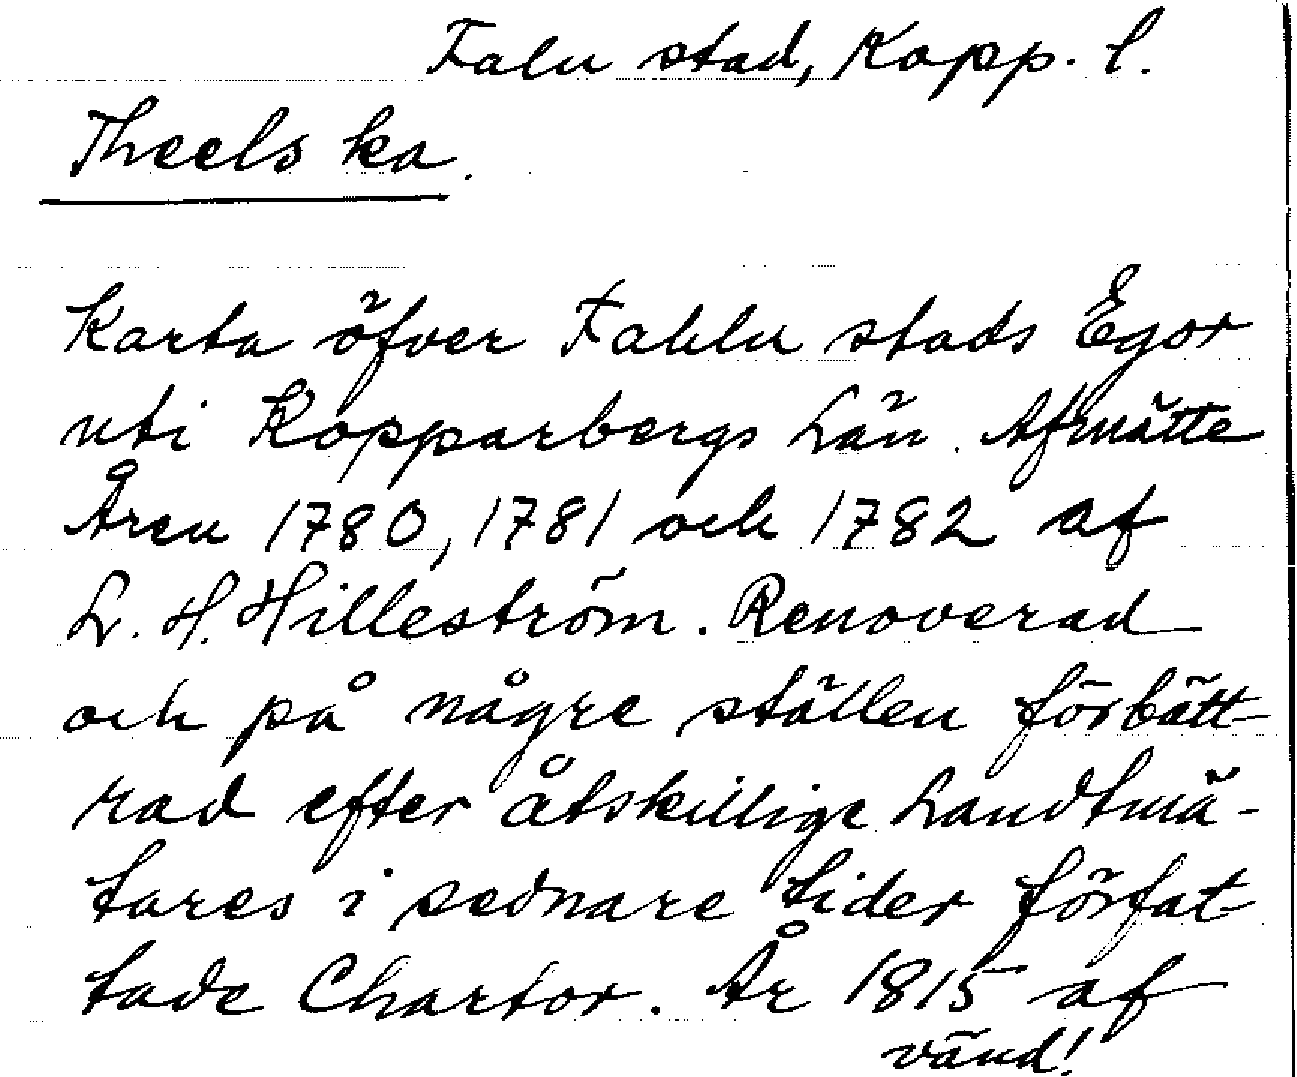 Falu stad, Kopp. l.
Theels ka.
Karta öfver Fahlu stads Egor
uti Kopparbergs Län. Afmätte
Åren 1780, 1781 och 1782 af
L. H. Hilleström. Renoverad
och på några ställen förbätt-
rad efter åtskillige Landtmä-
tares i sednare tider förfat-
tade Chartor. År 1815 af
vänd!